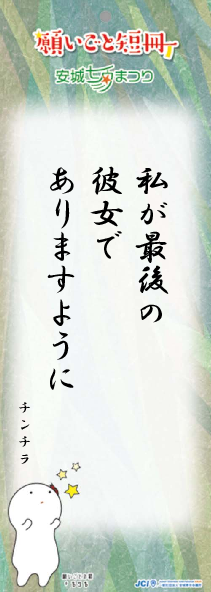 願いごと短冊
安城七夕まつり
私が最後の
彼女で
ありますように
チンチラ
JCI